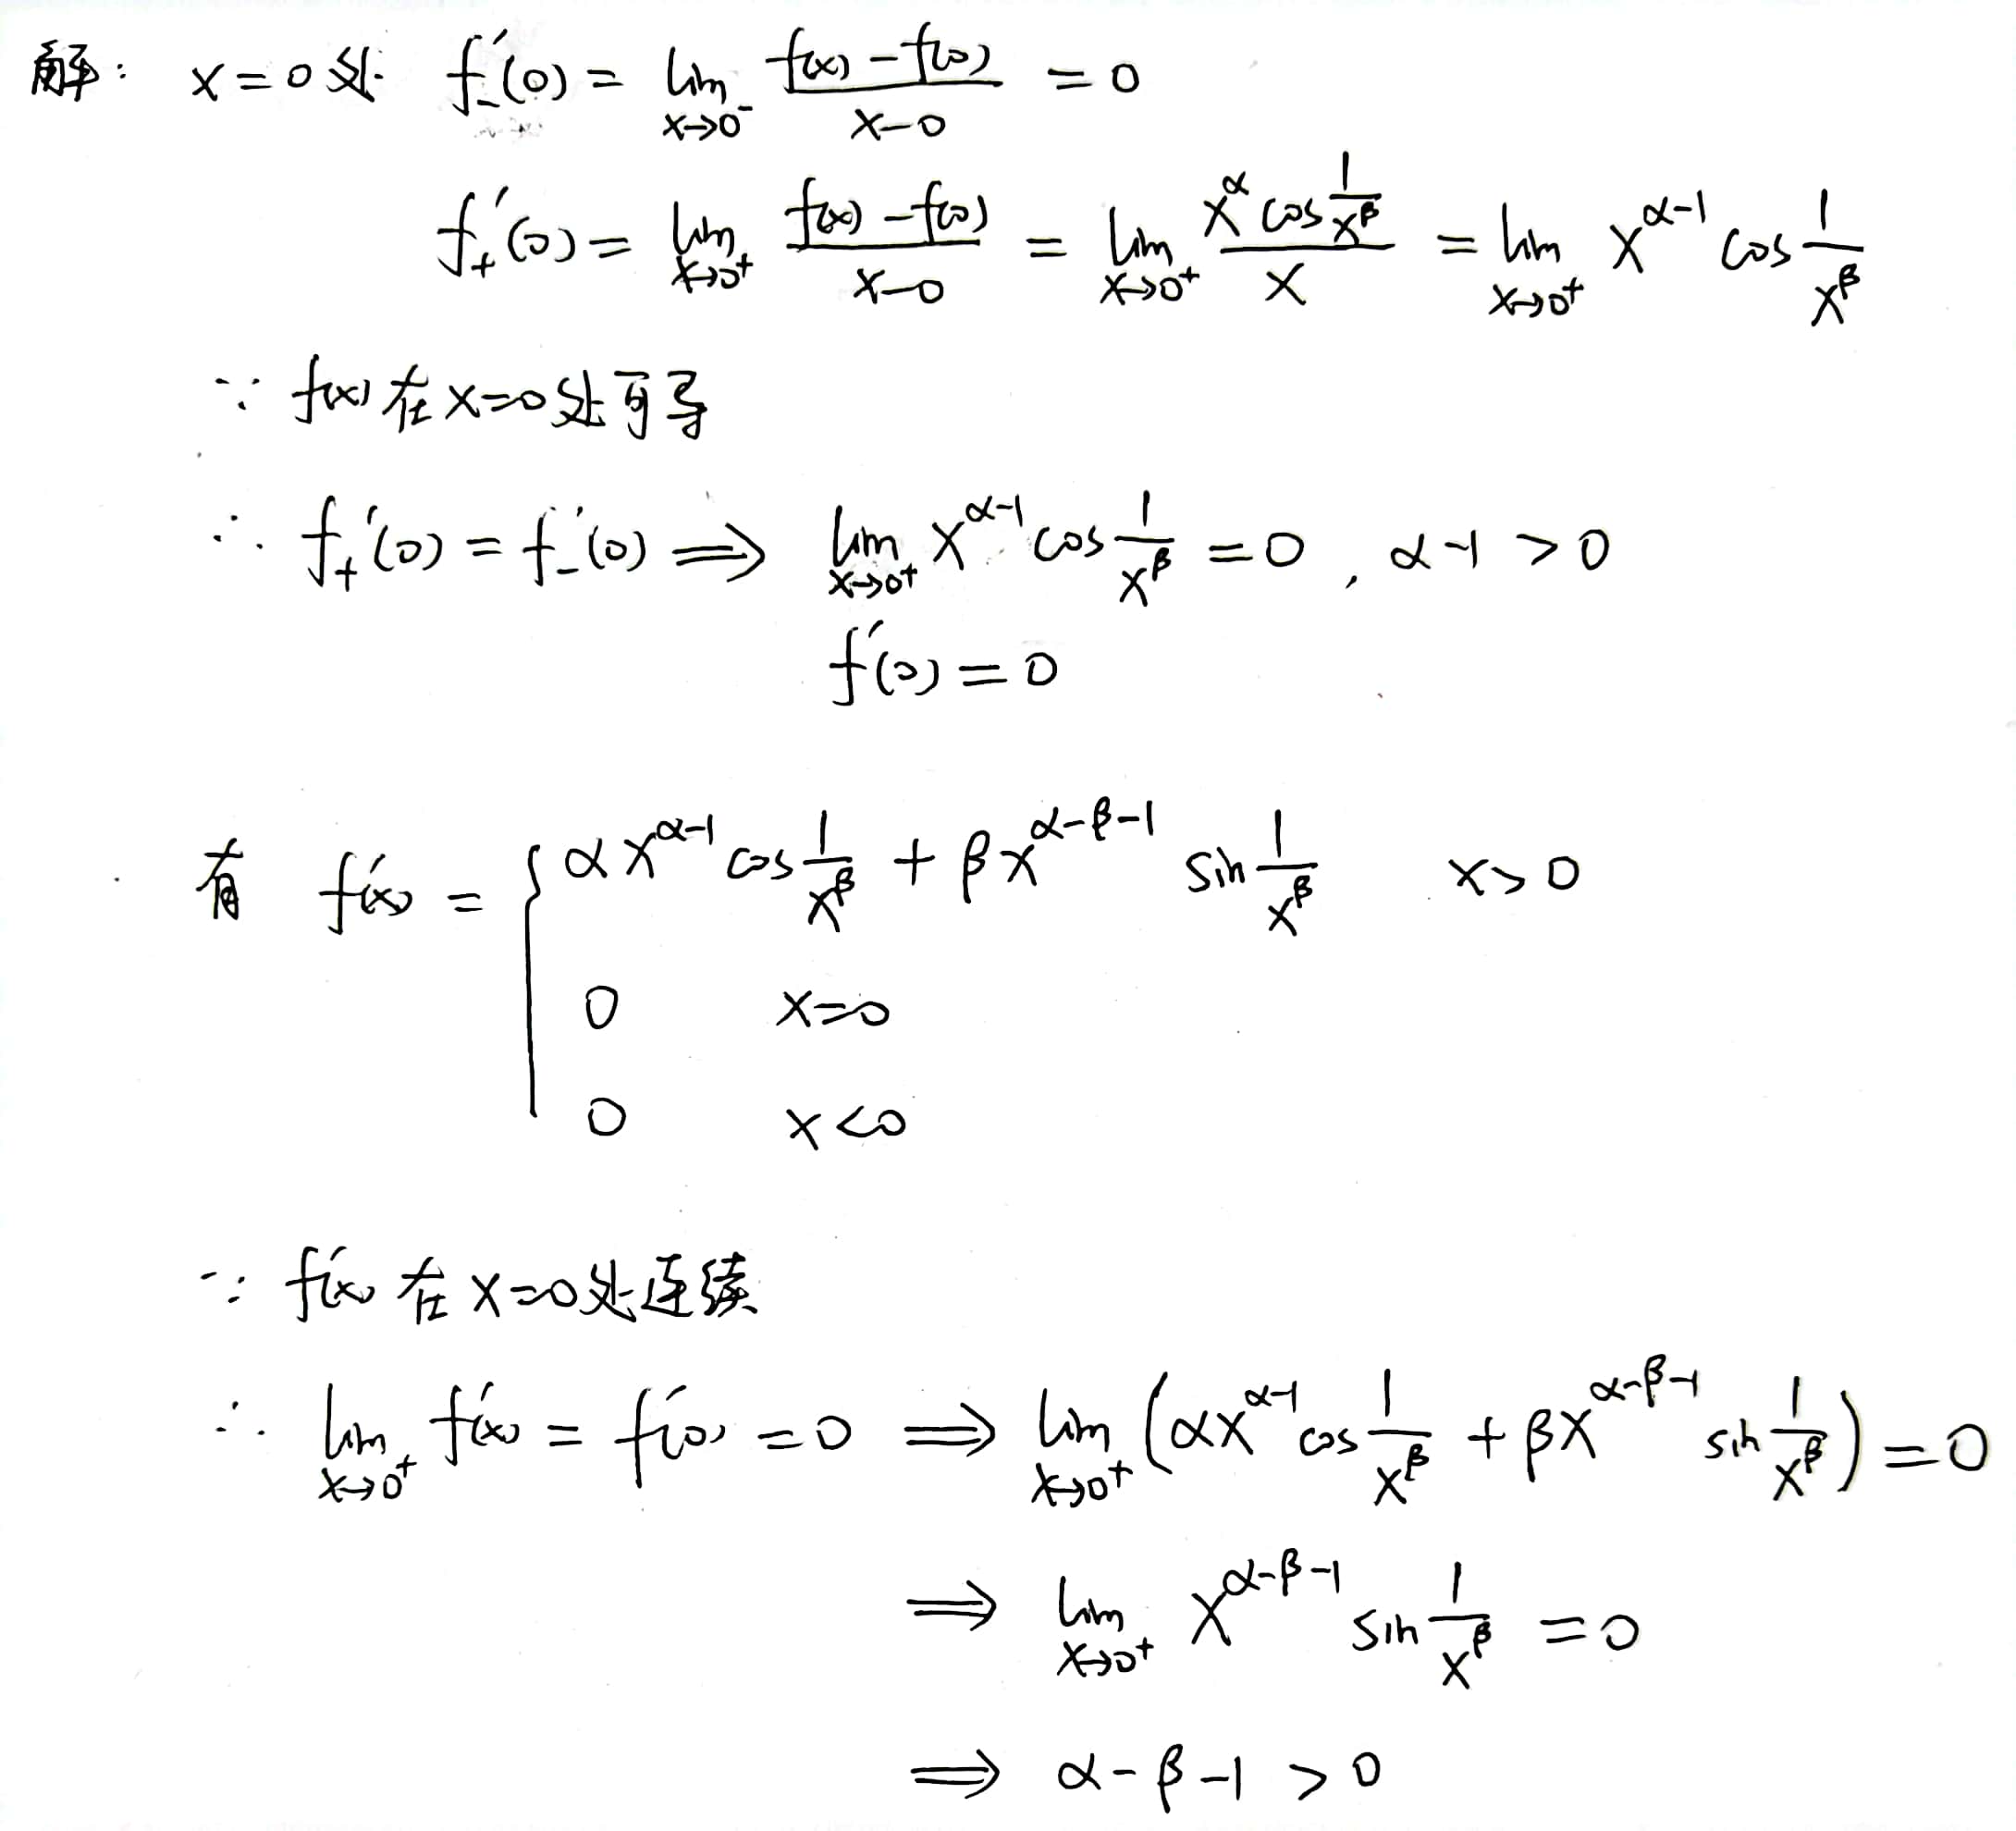 解: x=0处 f₋′(0) = lim_{x→0⁻} (f(x)-f(0))/(x-0) = 0
f₊′(0) = lim_{x→0⁺} (f(x)-f(0))/(x-0) = lim_{x→0⁺} (x^α cos(1/x^β))/x = lim_{x→0⁺} x^{α-1} cos(1/x^β)
∵ f(x)在x=0处可导
∴ f₊′(0) = f₋′(0) ⟹ lim_{x→0⁺} x^{α-1} cos(1/x^β) = 0, α-1>0
f′(0)=0
有 f′(x) = { αx^{α-1} cos(1/x^β) + βx^{α-β-1} sin(1/x^β) x>0
0 x=0
0 x<0
∵ f′(x)在x=0处连续
∴ lim_{x→0⁺} f′(x) = f′(0) = 0 ⟹ lim_{x→0⁺} (αx^{α-1} cos(1/x^β) + βx^{α-β-1} sin(1/x^β)) = 0
⟹ lim_{x→0⁺} x^{α-β-1} sin(1/x^β) = 0
⟹ α-β-1>0